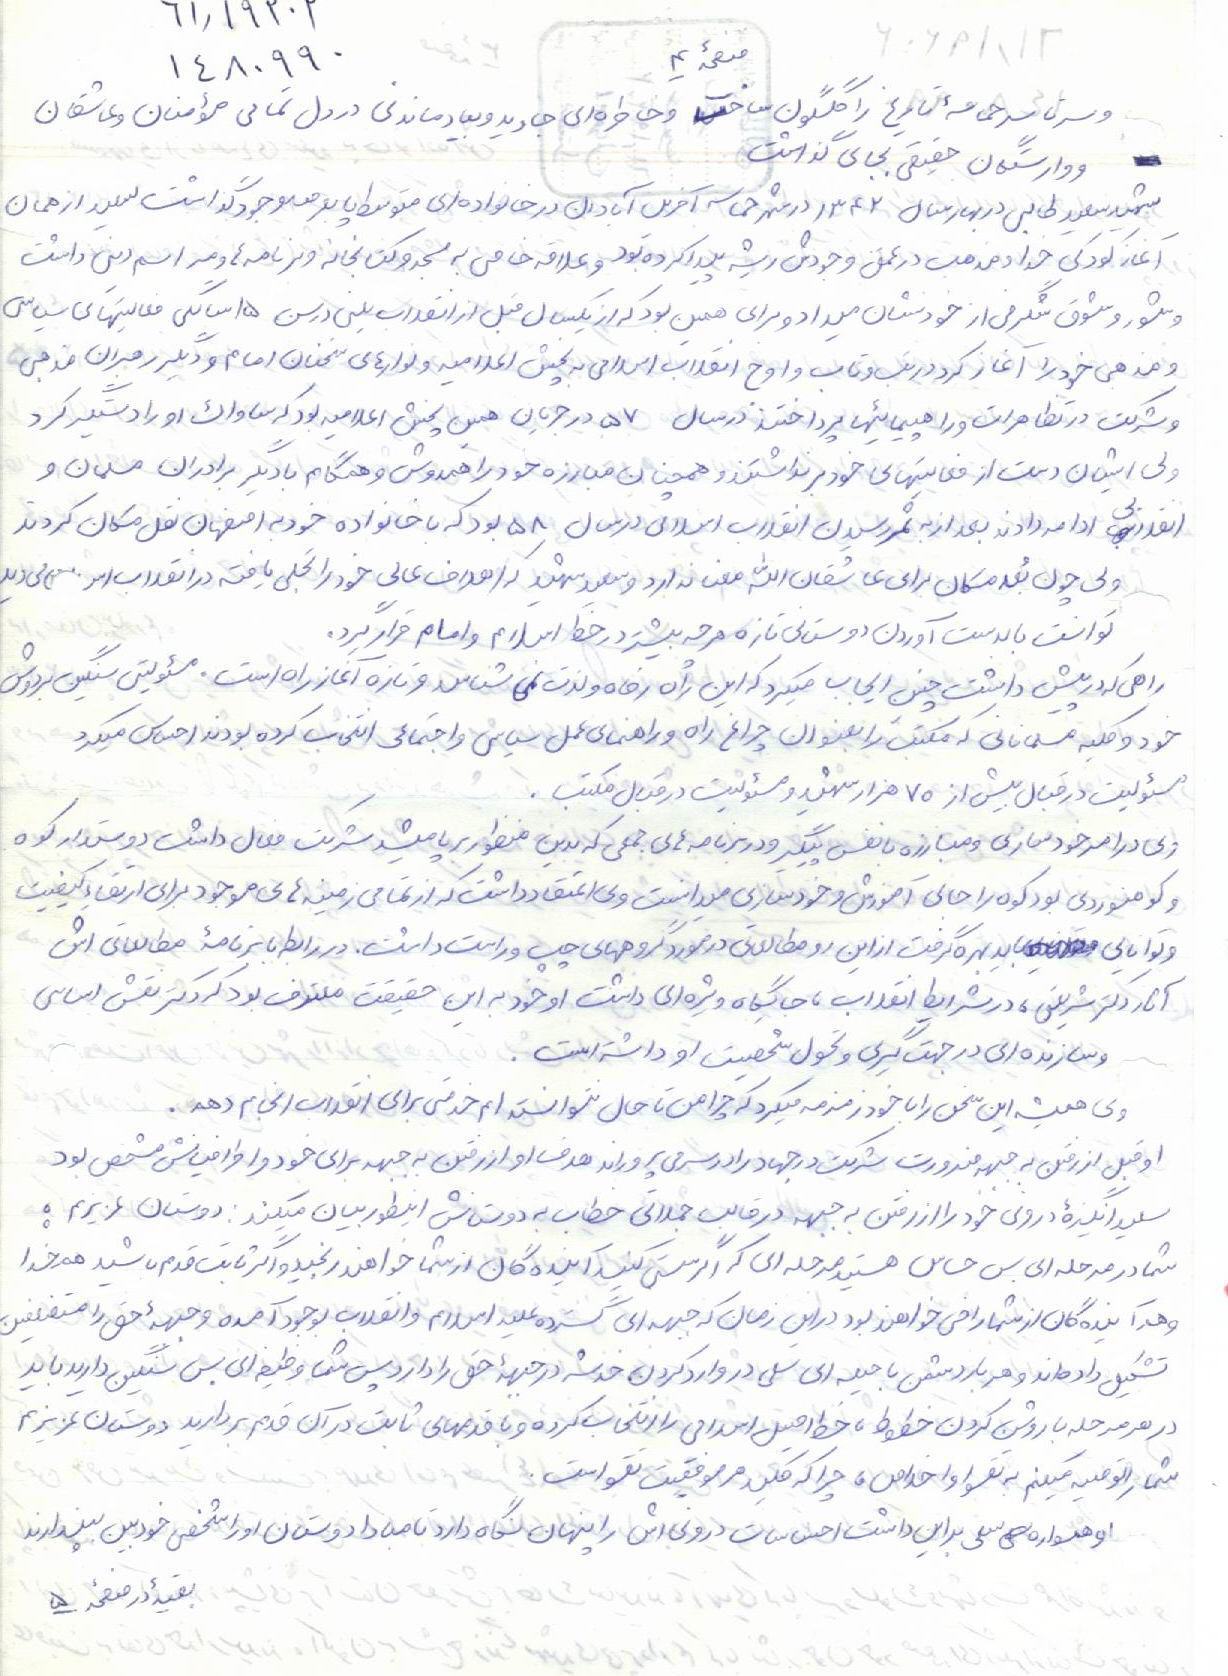 ۶۱۱۹۲۰۲
۱۴۸۰۹۹۰
صفحهٔ ۴
و سرتاسر حماسهٔ تاریخ را گلگون ساخت و خاطره‌ای جاوید و بیادماندنی در دل تمامی مؤمنان و عاشقان
و وارستگان حقیقی بجای گذاشت
شهید سعید طالبی در بهار سال ۱۳۴۲ در شهر حماسه آفرین آبادان در خانواده‌ای متوسط پا به عرصه وجود گذاشت سعید از همان
آغاز کودکی خدا و مذهب در عمق وجودش ریشه پیدا کرده بود و علاقه خاصی به مسجد و کتابخانه و برنامه‌ها و مراسم دینی داشت
و شور و شوق شگرفی از خود نشان میداد و برای همین بود که از یکسال قبل از انقلاب یعنی در سن ۱۵ سالگی فعالیتهای سیاسی
و مذهبی خود را آغاز کرد در تب و تاب و اوج انقلاب اسلامی به پخش اعلامیه و نوارهای سخنان امام و دیگر رهبران مذهبی
و شرکت در تظاهرات و راهپیمائیها پرداختند در سال ۵۷ در جریان همین پخش اعلامیه بود که ساواک او را دستگیر کرد
ولی ایشان دست از فعالیتهای خود برنداشتند و همچنان مبارزه خود را همدوش و همگام با دیگر برادران مسلمان و
انقلابی ادامه دادند بعد از به ثمر رسیدن انقلاب اسلامی در سال ۵۸ بود که با خانواده خود به اصفهان نقل مکان کردند
ولی چون بُعد مکان برای عاشقان الله معنا ندارد و سعید شهید که اهداف عالی خود را تجلی یافته در انقلاب اسلامی میدید
توانست با بدست آوردن دوستانی تازه هر چه بیشتر در خط اسلام و امام قرار گیرد.
راهی که در پیش داشت چنین ایجاب میکرد که این راه رفاه و لذت نمی‌شناسد و تازه آغاز راه است. مسئولیتی سنگین بر دوش
خود و کلیه مسلمانانی که مکتب را بعنوان چراغ راه و راهنمای عمل سیاسی و اجتماعی انتخاب کرده بودند احساس میکرد
مسئولیت در قبال بیش از ۷۰ هزار شهید و مسئولیت در قبال مکتب.
وی در امر خودسازی و مبارزه با نفس پیگیر و در برنامه‌های جمعی که بدین منظور برپا میشد شرکت فعال داشت دوستدار کوه
و کوهنوردی بود کوه را جایی آموزش و خودسازی میدانست وی اعتقاد داشت که از تمامی زمینه‌های موجود برای ارتقاء کیفیت
و توانایی باید بهره گرفت از این رو مطالعاتی در مورد گروههای چپ و راست داشت. در رابطه با برنامهٔ مطالعاتی اش
آثار دکتر شریعتی، در شرایط انقلاب، جایگاه ویژه‌ای داشت او خود به این حقیقت معترف بود که دکتر نقش اساسی
و سازنده‌ای در جهت گیری و تحول شخصیت او داشته است.
وی همیشه این سخن را با خود زمزمه میکرد که چرا من تا حال نتوانسته ام خدمتی برای انقلاب انجام دهم.
او قبل از رفتن به جبهه ضرورت شرکت در جهاد را در سر می پروراند هدف او از رفتن به جبهه برای خود و اطرافیانش مشخص بود
سعید انگیزهٔ درونی خود را از رفتن به جبهه در قالب جملاتی خطاب به دوستانش اینطور بیان میکند: دوستان عزیزم،
شما در مرحله‌ای بس حساس هستید مرحله‌ای که اگر سستی کنید آیندگان از شما خواهند رنجید و اگر ثابت قدم باشید هم خدا
و هم آیندگان از شما راضی خواهند بود در این زمان که جبهه‌ای گسترده علیه اسلام و انقلاب بوجود آمده و جبههٔ حق را مستضعفین
تشکیل داده‌اند و هر بار دشمن با حیله‌ای سعی در وارد کردن خدشه در جبههٔ حق را دارد پس شما وظیفه‌ای بس سنگین دارید باید
در هر مرحله با روشن کردن خطوط، خط اصیل اسلامی را انتخاب کرده و با قدمهای ثابت در آن قدم بردارید دوستان عزیزم
شما را توصیه میکنم به تقوا و اخلاص، چرا که کلید هر موفقیت تقوا است.
او همواره سعی بر این داشت احساسات درونی اش را پنهان نگاه دارد تا مبادا دوستان او را شخص خودبین بپندارند
بقیه در صفحهٔ ۵